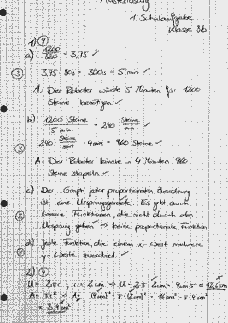 Musterlösung
1. Schulaufgabe
Klasse 8b
1) (4)
a) 1200 / 320 = 3,75 ✓
(3) 3,75 · 80s = 300s = 5 min ✓
A. Der Roboter würde 5 Minuten für 1200
Steine benötigen ✓
b) 1200 Steine / 5 min = 240 Steine / min ✓
240 Steine / min · 4 min = 960 Steine ✓
A: Der Roboter könnte in 4 Minuten 960
Steine stapeln ✓
c) Der Graph jeder proportionalen Zuordnung
ist eine Ursprungsgerade. Es gibt auch
lineare Funktionen, die nicht durch den
Ursprung gehen → keine proportionale Funktion
d) jede Funktion, die einem x-Wert mehrere
y-Werte zuordnet ✓
2) (4)